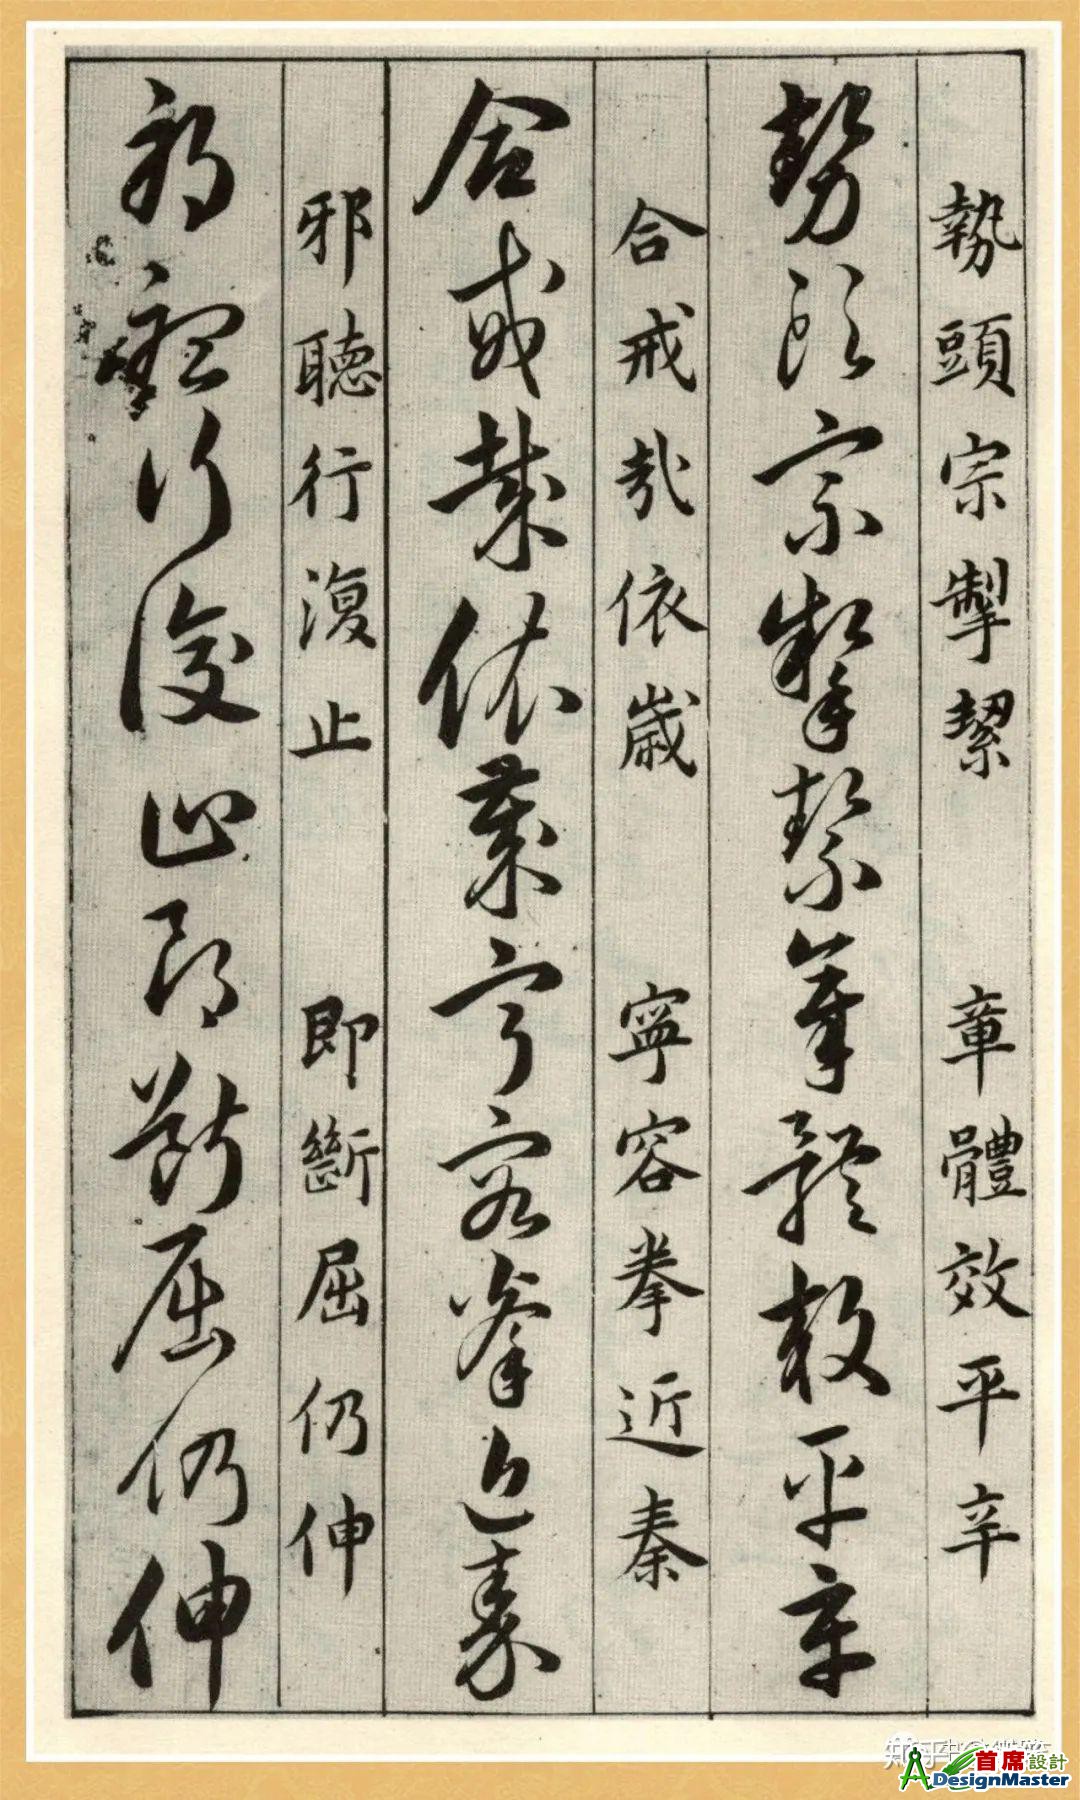 勢頭宗掣絜　章體效平辛
勢頭宗掣絜章體效平辛
合戒哉依歲　寧容拳近秦
合戒哉依歲寧容拳近秦
邪聽行復止　即斷屈仍伸
邪聽行復止即斷屈仍伸
首席設計
DesignMaster